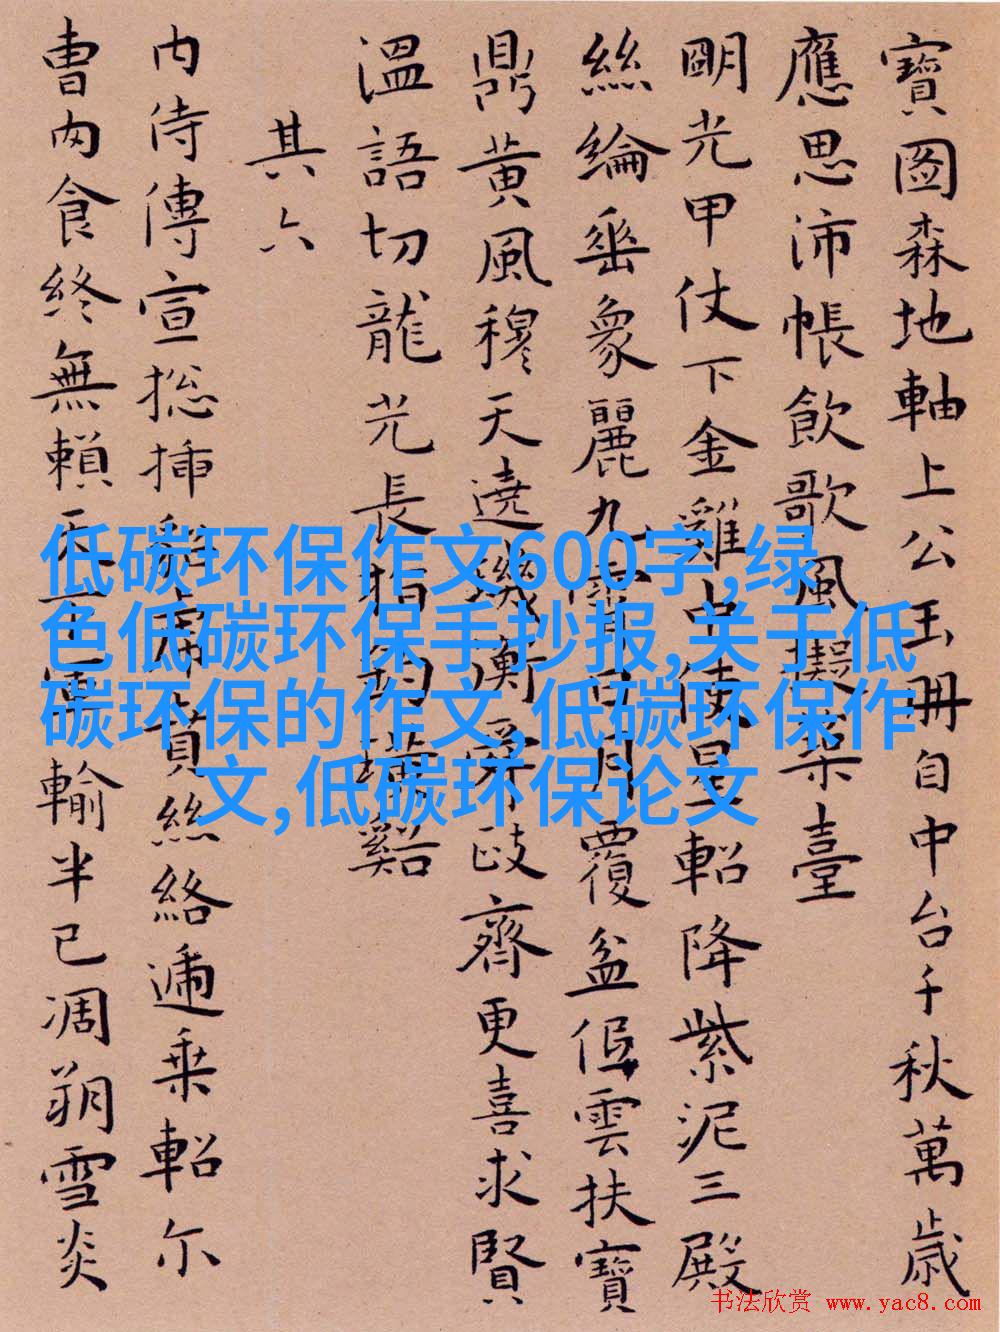 寶圖森地軸上公玉冊自中台千秋萬歲
應思沛帳飲歌風擬築臺
明光甲仗下金雞中使星軺降紫泥三殿
絲綸垂象麗九霄日月覆盆伹雲扶寶
鼎黃風穆天遶璣衡歧齊更喜求賢
溫語切龍光長谿
其六
內侍傳宣捴揷絲絡遞乘軺尒
曹內食終無賴天下軍輸半已凋朔雪炎
低碳环保作文600字,绿
色低碳环保手抄报,关于低
碳环保的作文,低碳环保作
文,低碳环保论文
书法欣赏 www.yac8.com